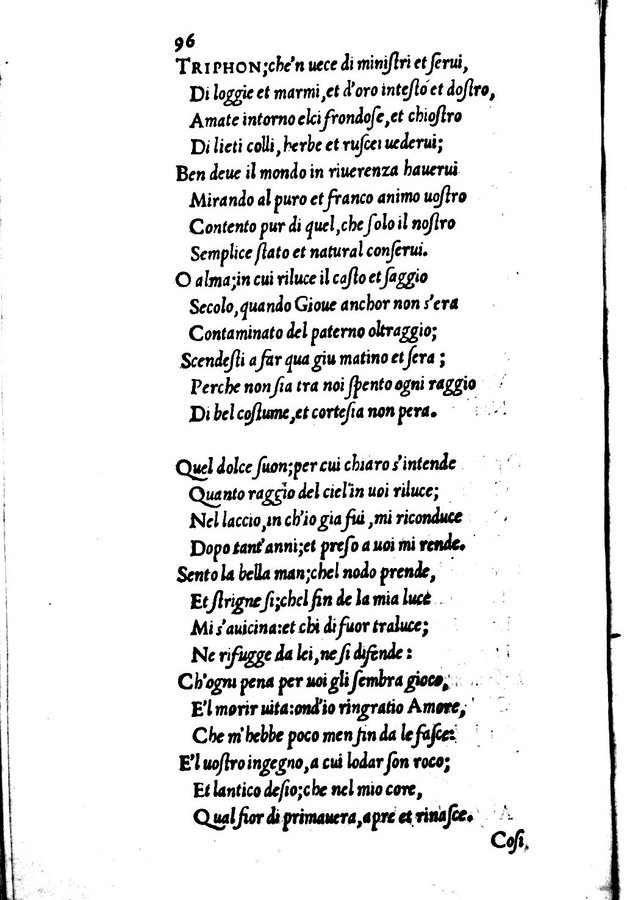 96
TRIPHON;che'n uece di miniſtri et ſerui,
Di loggie et marmi,et d'oro inteſto et doſtro,
Amate intorno elci frondoſe,et chioſtro
Di lieti colli, herbe et ruſcei uederui;
Ben deue il mondo in riuerenza hauerui
Mirando al puro et franco animo uoſtro
Contento pur di quel,che ſolo il noſtro
Semplice ſtato et natural conſerui.
O alma;in cui riluce il caſto et ſaggio
Secolo,quando Gioue anchor non s'era
Contaminato del paterno oltraggio;
Scendeſti a far qua giu matino et ſera ;
Perche non ſia tra noi ſpento ogni raggio
Di bel coſtume,et corteſia non pera.
Quel dolce ſuon;per cui chiaro s'intende
Quanto raggio del ciel'in uoi riluce;
Nel laccio,in ch'io gia fui ,mi riconduce
Dopo tant'anni;et preſo a uoi mi rende.
Sento la bella man;chel nodo prende,
Et ſtrigne ſi;chel fin de la mia luce
Mi s'auicina:et chi di fuor traluce;
Ne rifugge da lei,ne ſi difende :
Ch'ogni pena per uoi gli ſembra gioco,
E'l morir uita:ond'io ringratio Amore,
Che m'hebbe poco men fin da le faſce:
E'l uoſtro ingegno,a cui lodar ſon roco;
Et lantico deſio;che nel mio core,
Qual fior di primauera,apre et rinaſce.
Coſi,